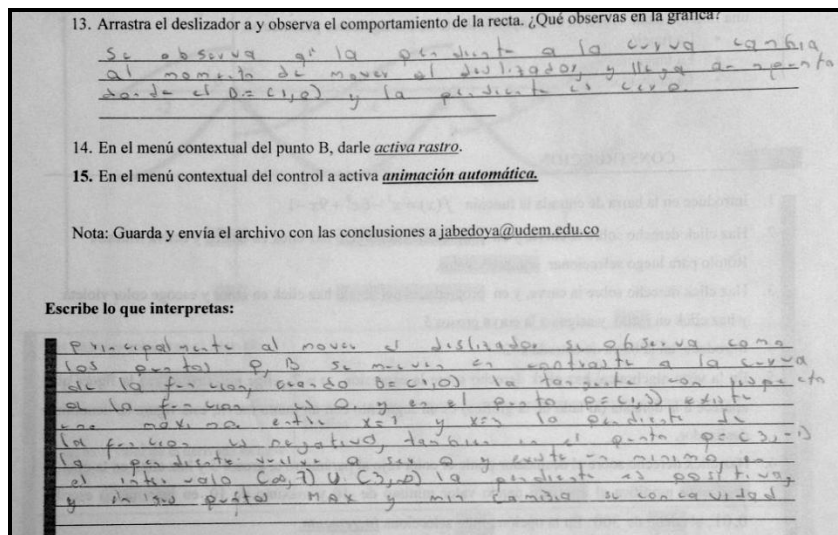 13. Arrastra el deslizador a y observa el comportamiento de la recta. ¿Qué observas en la gráfica?
Se observa q' la pendiente a la curva cambia
al momento de mover el deslizador, y llega a un punto
donde el B = (1,0) y la pendiente es cero.
14. En el menú contextual del punto B, darle activa rastro.
15. En el menú contextual del control a activa animación automática.
Nota: Guarda y envía el archivo con las conclusiones a jabedoya@udem.edu.co
Escribe lo que interpretas:
Principalmente al mover el deslizador se observa como
los puntos P, B se mueven en contraste a la curva
de la funcion, cuando B = (1,0) la tangente con respecto
a la funcion es 0. y en el punto P = (1,3) existe
una maximo. entre x=1 y x=3 la pendiente de
la funcion es negativa, tambien en el punto P = (3,-1)
la pendiente vuelve a ser 0 y existe un minimo, en
el intervalo (∞,1) U (3,∞) la pendiente es positiva,
y en sus puntos Max y min cambia su concavidad